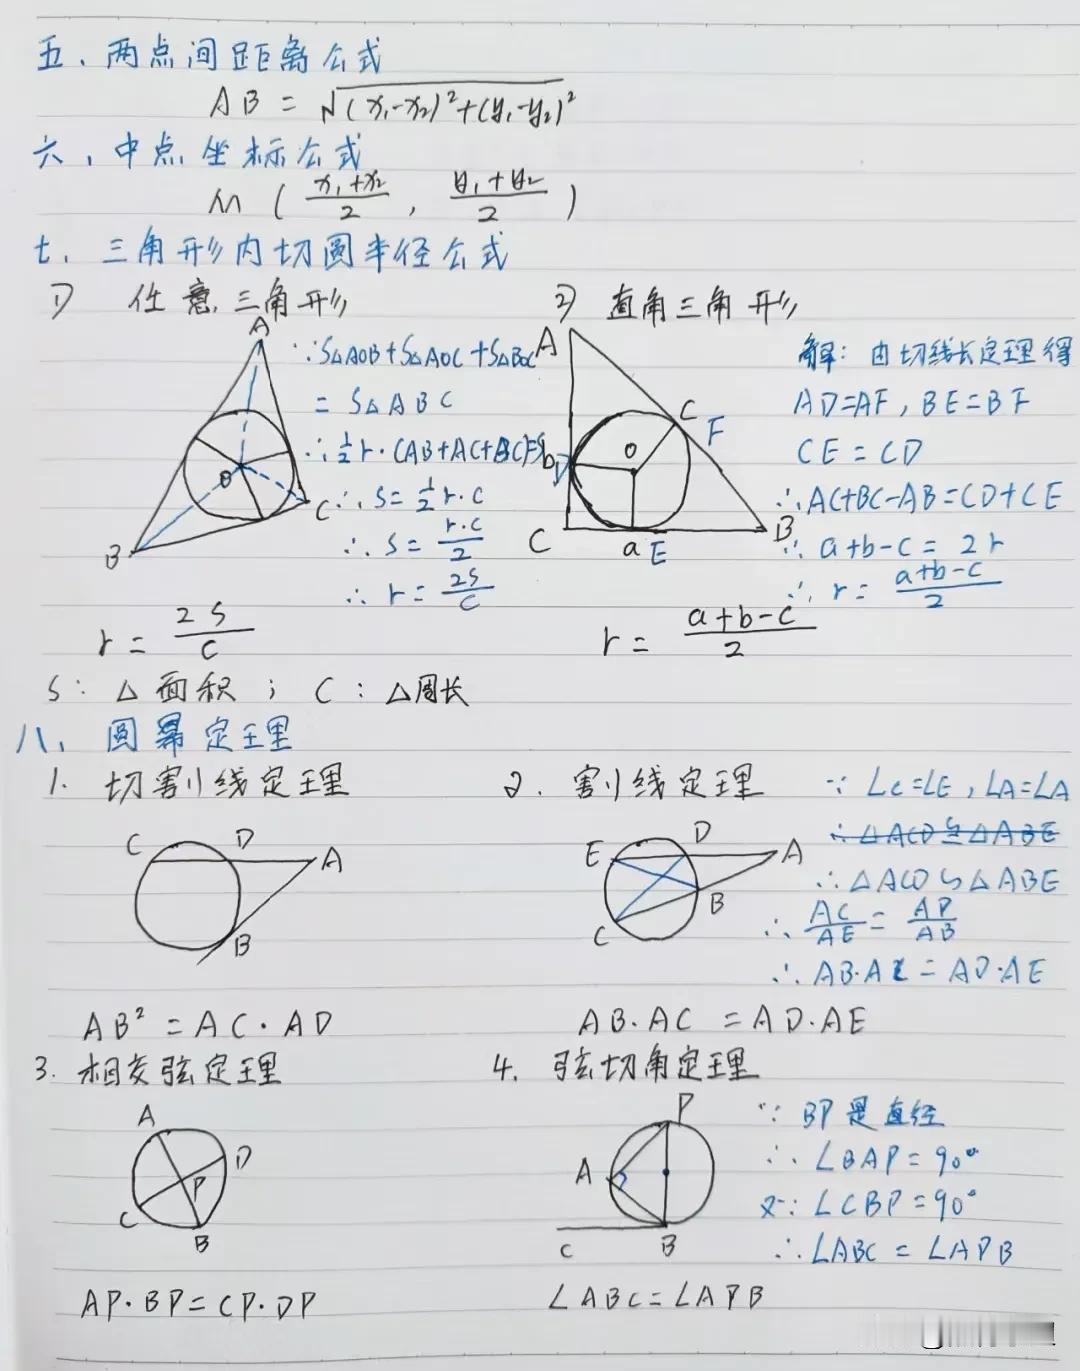 五、两点间距离公式
AB = √(x₁-x₂)²+(y₁-y₂)²
六、中点坐标公式
M ( (x₁+x₂)/2 , (y₁+y₂)/2 )
七、三角形内切圆半径公式
1) 任意三角形
A
B
C
O
∵ S△AOB + S△AOC + S△BOC
= S△ABC
∴ ½r·(AB+AC+BC)=S
∴ S = ½ r·C
∴ S = r·C/2
∴ r = 2S/C
r = 2S/C
2) 直角三角形
A
C F
O
b D
C a E B
解: 由切线长定理得
AD=AF, BE=BF
CE = CD
∴ AC+BC-AB=CD+CE
∴ a+b-c = 2r
∴ r = (a+b-c)/2
r = (a+b-c)/2
S: △面积 ; C: △周长
八、圆幂定理
1. 切割线定理
C D A
B
AB² = AC·AD
2. 割线定理
E D A
C B
∵ ∠C=∠E, ∠A=∠A
∴ △ACD≌△ABE
∴ △ACD∽△ABE
∴ AC/AE = AD/AB
∴ AB·AC = AD·AE
AB·AC = AD·AE
3. 相交弦定理
A D
P
C B
AP·BP=CP·DP
4. 弦切角定理
P
A
C B
∵ BP是直径
∴ ∠BAP = 90°
又∵ ∠CBP = 90°
∴ ∠ABC = ∠APB
∠ABC=∠APB